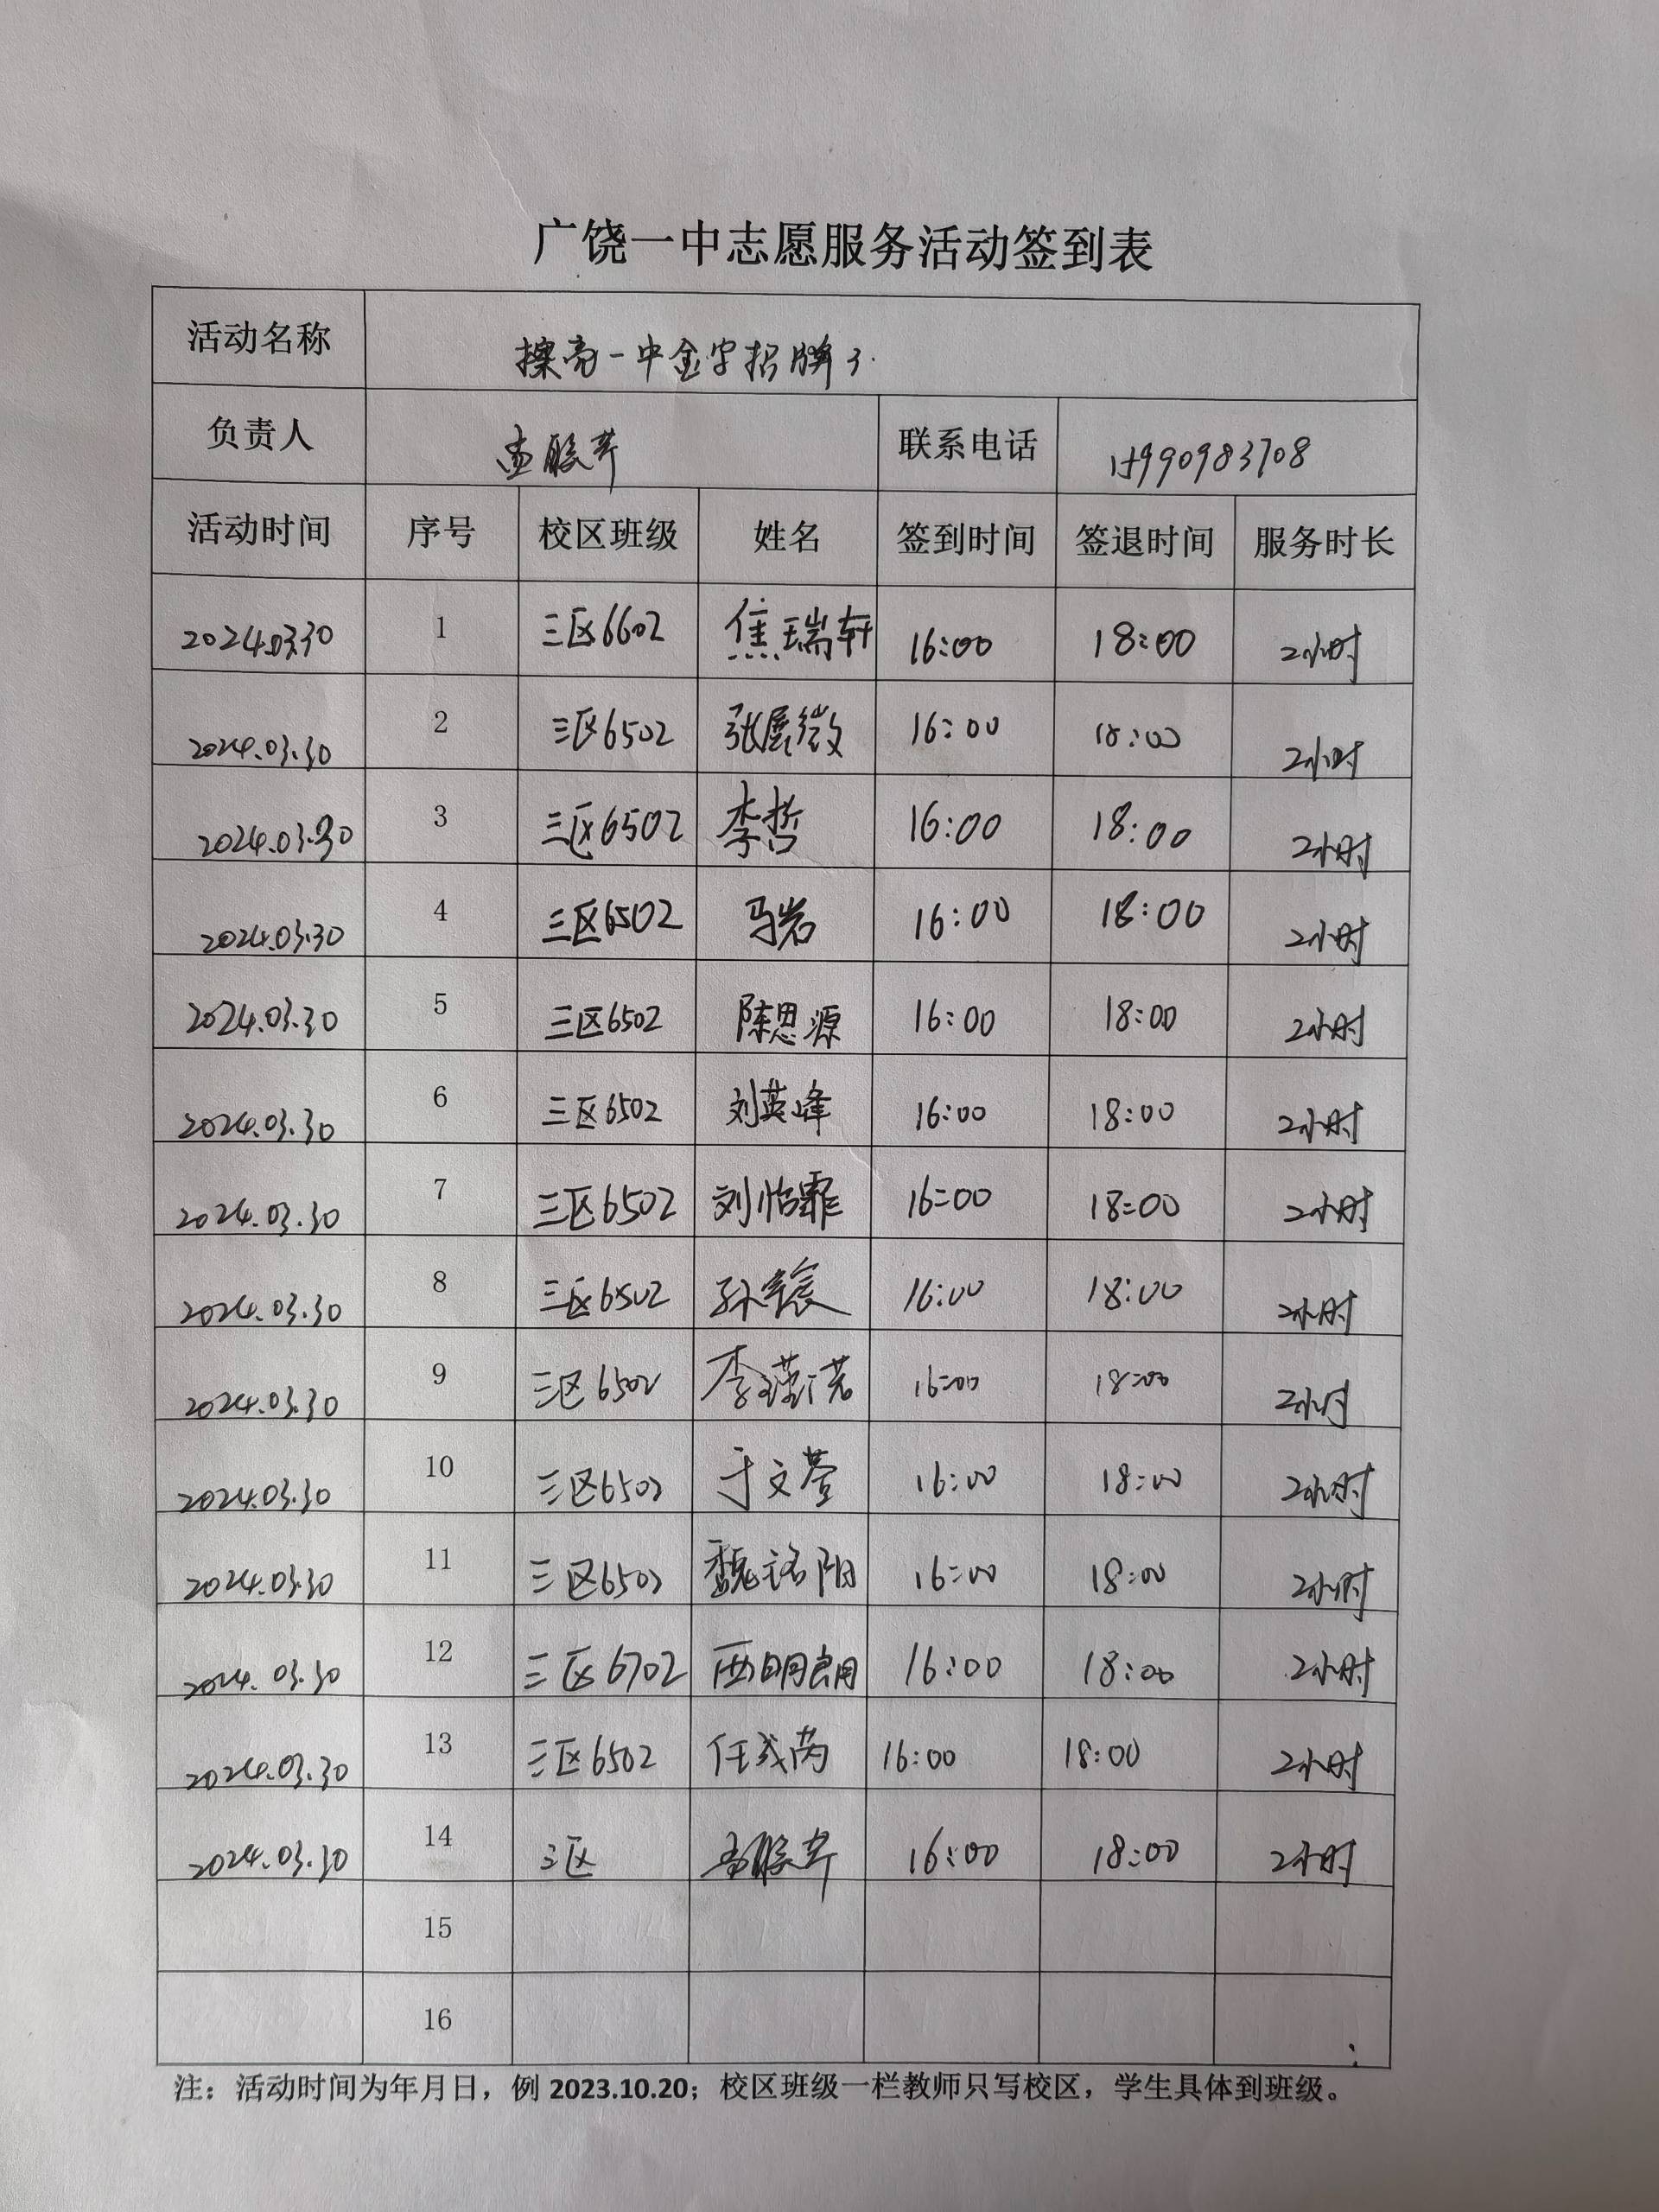 广饶一中志愿服务活动签到表
活动名称 擦亮一中金字招牌3.
负责人 孟滕芹 联系电话 15990983708
活动时间 序号 校区班级 姓名 签到时间 签退时间 服务时长
2024.03.30 1 三区6602 焦瑞轩 16:00 18:00 2小时
2024.03.30 2 三区6502 张展微 16:00 18:00 2小时
2024.03.30 3 三区6502 李哲 16:00 18:00 2小时
2024.03.30 4 三区6502 马岩 16:00 18:00 2小时
2024.03.30 5 三区6502 陈思源 16:00 18:00 2小时
2024.03.30 6 三区6502 刘英峰 16:00 18:00 2小时
2024.03.30 7 三区6502 刘怡霏 16:00 18:00 2小时
2024.03.30 8 三区6502 孙 16:00 18:00 2小时
2024.03.30 9 三区6502 李瑾诺 16:00 18:00 2小时
2024.03.30 10 三区6502 于文萱 16:00 18:00 2小时
2024.03.30 11 三区6502 魏铭阳 16:00 18:00 2小时
2024.03.30 12 三区6702 西明朗 16:00 18:00 2小时
2024.03.30 13 三区6502 任芮 16:00 18:00 2小时
2024.03.30 14 三区 孟滕芹 16:00 18:00 2小时
15
16
注：活动时间为年月日，例2023.10.20；校区班级一栏教师只写校区，学生具体到班级。